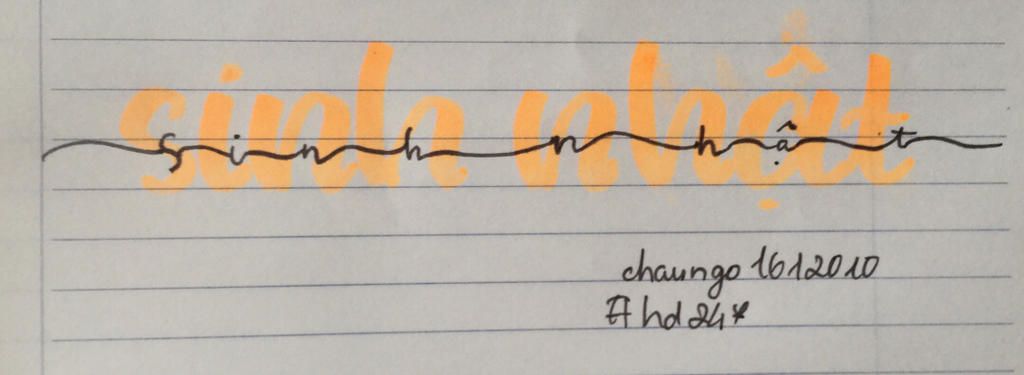 sinh nhật
sinh nhật
chaungo16012010
#hd24*